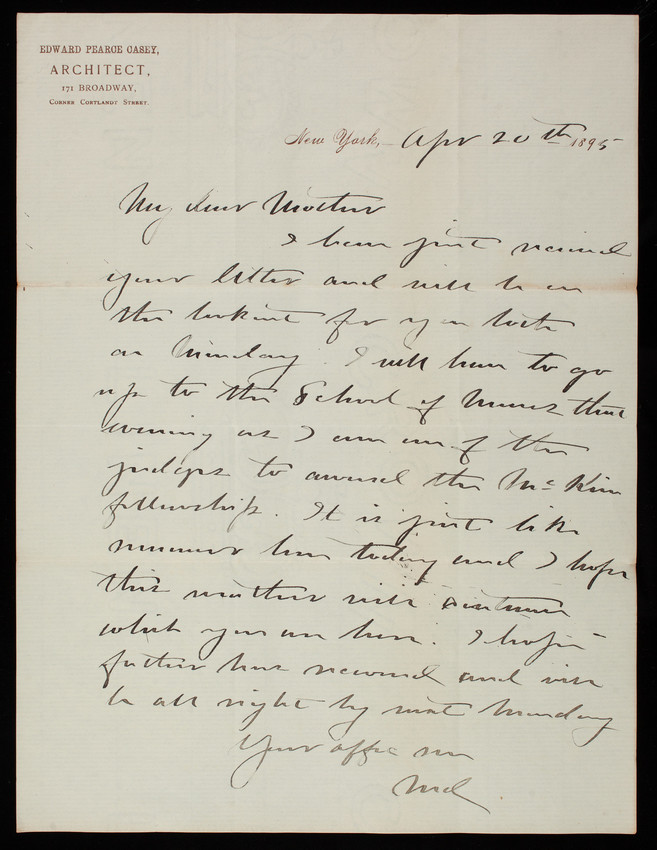 EDWARD PEARCE CASEY,
ARCHITECT,
171 BROADWAY,
CORNER CORTLANDT STREET.
New York, Apr 20th 1895
My dear Mother
I have just received
your letter and will be on
the lookout for you both
on Monday. I will have to go
up to the School of Mines that
evening as I am one of the
judges to award the McKim
fellowship. It is just like
summer here today and I hope
this weather will continue
while you are here. I hope
father has recovered and will
be all right by next Monday
Your affec son
Ned